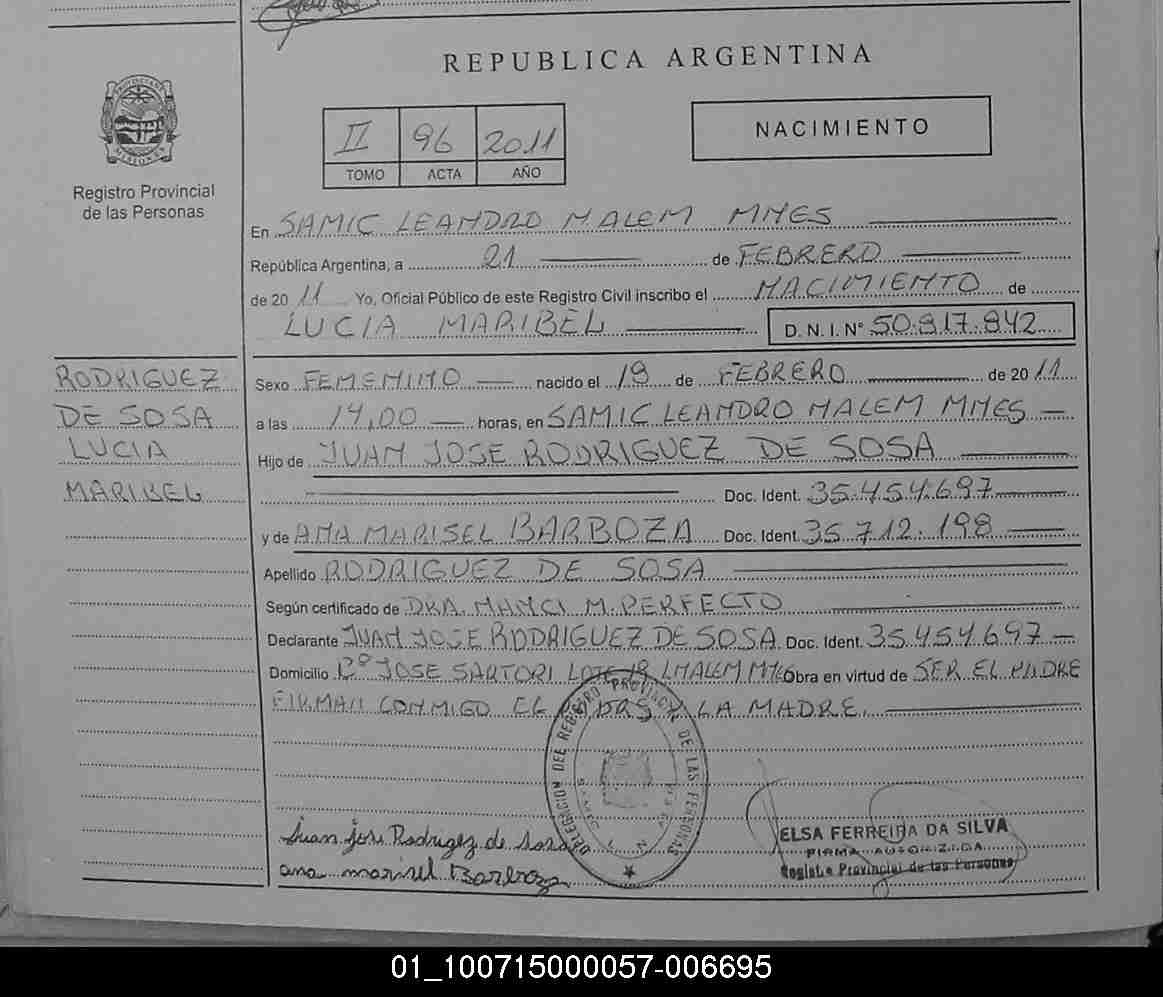 REPUBLICA ARGENTINA
PROVINCIA DE MISIONES
Registro Provincial
de las Personas
II 96 2011
TOMO ACTA AÑO
NACIMIENTO
En SAMIC LEANDRO N ALEM MNES
República Argentina, a 21 de FEBRERO
de 2011 Yo, Oficial Público de este Registro Civil inscribo el NACIMIENTO de
LUCIA MARIBEL D. N. I. N° 50.917.942
RODRIGUEZ
DE SOSA
LUCIA
MARIBEL
Sexo FEMENINO nacido el 19 de FEBRERO de 2011
a las 14,00 horas, en SAMIC LEANDRO N ALEM MNES
Hijo de JUAN JOSE RODRIGUEZ DE SOSA
Doc. Ident. 35.454.697
y de ANA MARISEL BARBOZA Doc. Ident. 35.712.198
Apellido RODRIGUEZ DE SOSA
Según certificado de DRA. NANCI M. PERFECTO
Declarante JUAN JOSE RODRIGUEZ DE SOSA Doc. Ident. 35.454.697
Domicilio B° JOSE SARTORI LOTE 19 LNALEM MNES Obra en virtud de SER EL PADRE
FIRMAN CONMIGO EL PADRE Y LA MADRE.
DELEGACION DEL REGISTRO PROVINCIAL DE LAS PERSONAS
Juan jose Rodrigez de sosa
ana marisel Barboza
ELSA FERREIRA DA SILVA
FIRMA AUTORIZADA
Registro Provincial de las Personas
01_100715000057-006695